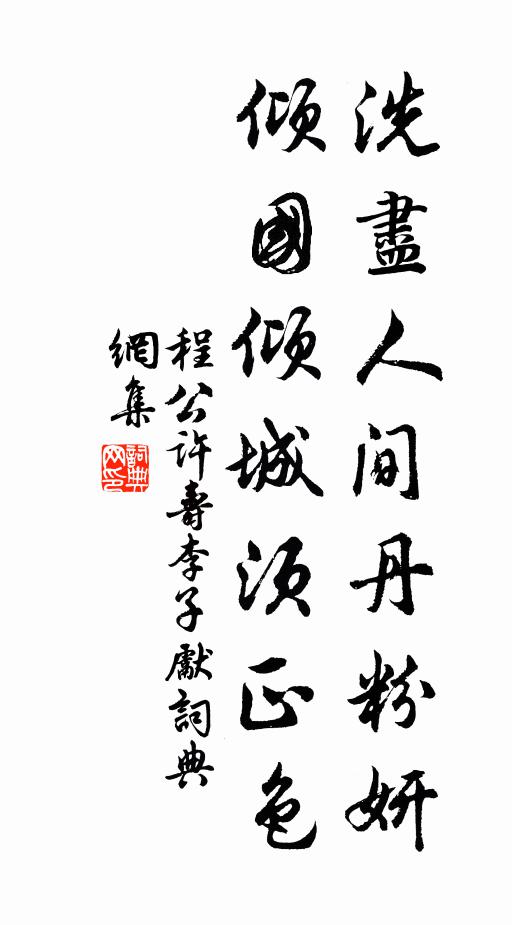 洗盡人间丹粉妍
傾國傾城須正色
程公許壽李子獻詞典
網集
詞典
网印